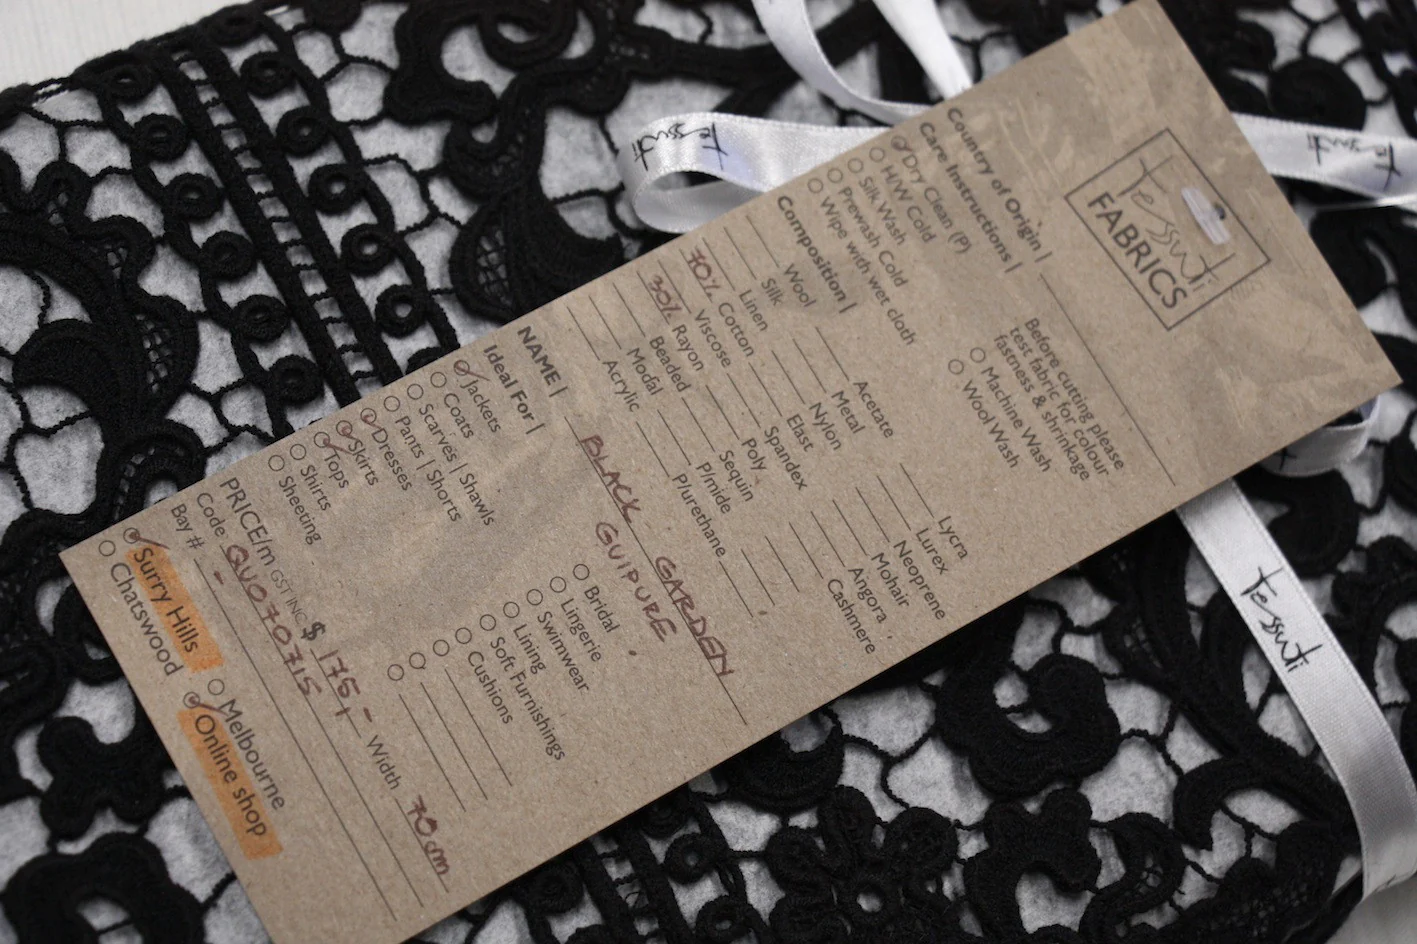 Tessuti
FABRICS
Country of Origin |
Care Instructions |
Dry Clean (P)
H/W Cold
Silk Wash
Prewash Cold
Wipe with wet cloth
Before cutting please
test fabric for colour
fastness & shrinkage
Machine Wash
Wool Wash
Composition |
Wool
Silk
Linen
70% Cotton
Viscose
30% Rayon
Beaded
Modal
Acrylic
Acetate
Metal
Nylon
Elast
Spandex
Poly
Sequin
P/mide
P/urethane
Lycra
Lurex
Neoprene
Mohair
Angora
Cashmere
NAME | BLACK GARDEN
GUIPURE
Ideal For |
Jackets
Coats
Scarves | Shawls
Pants | Shorts
Dresses
Skirts
Tops
Shirts
Sheeting
Bridal
Lingerie
Swimwear
Lining
Soft Furnishings
Cushions
PRICE/m GST INC $ 175 - Width 70cm
Code GUO70715
Bay # -
Surry Hills
Chatswood
Melbourne
Online shop
Tessuti
Tessuti
Tessuti